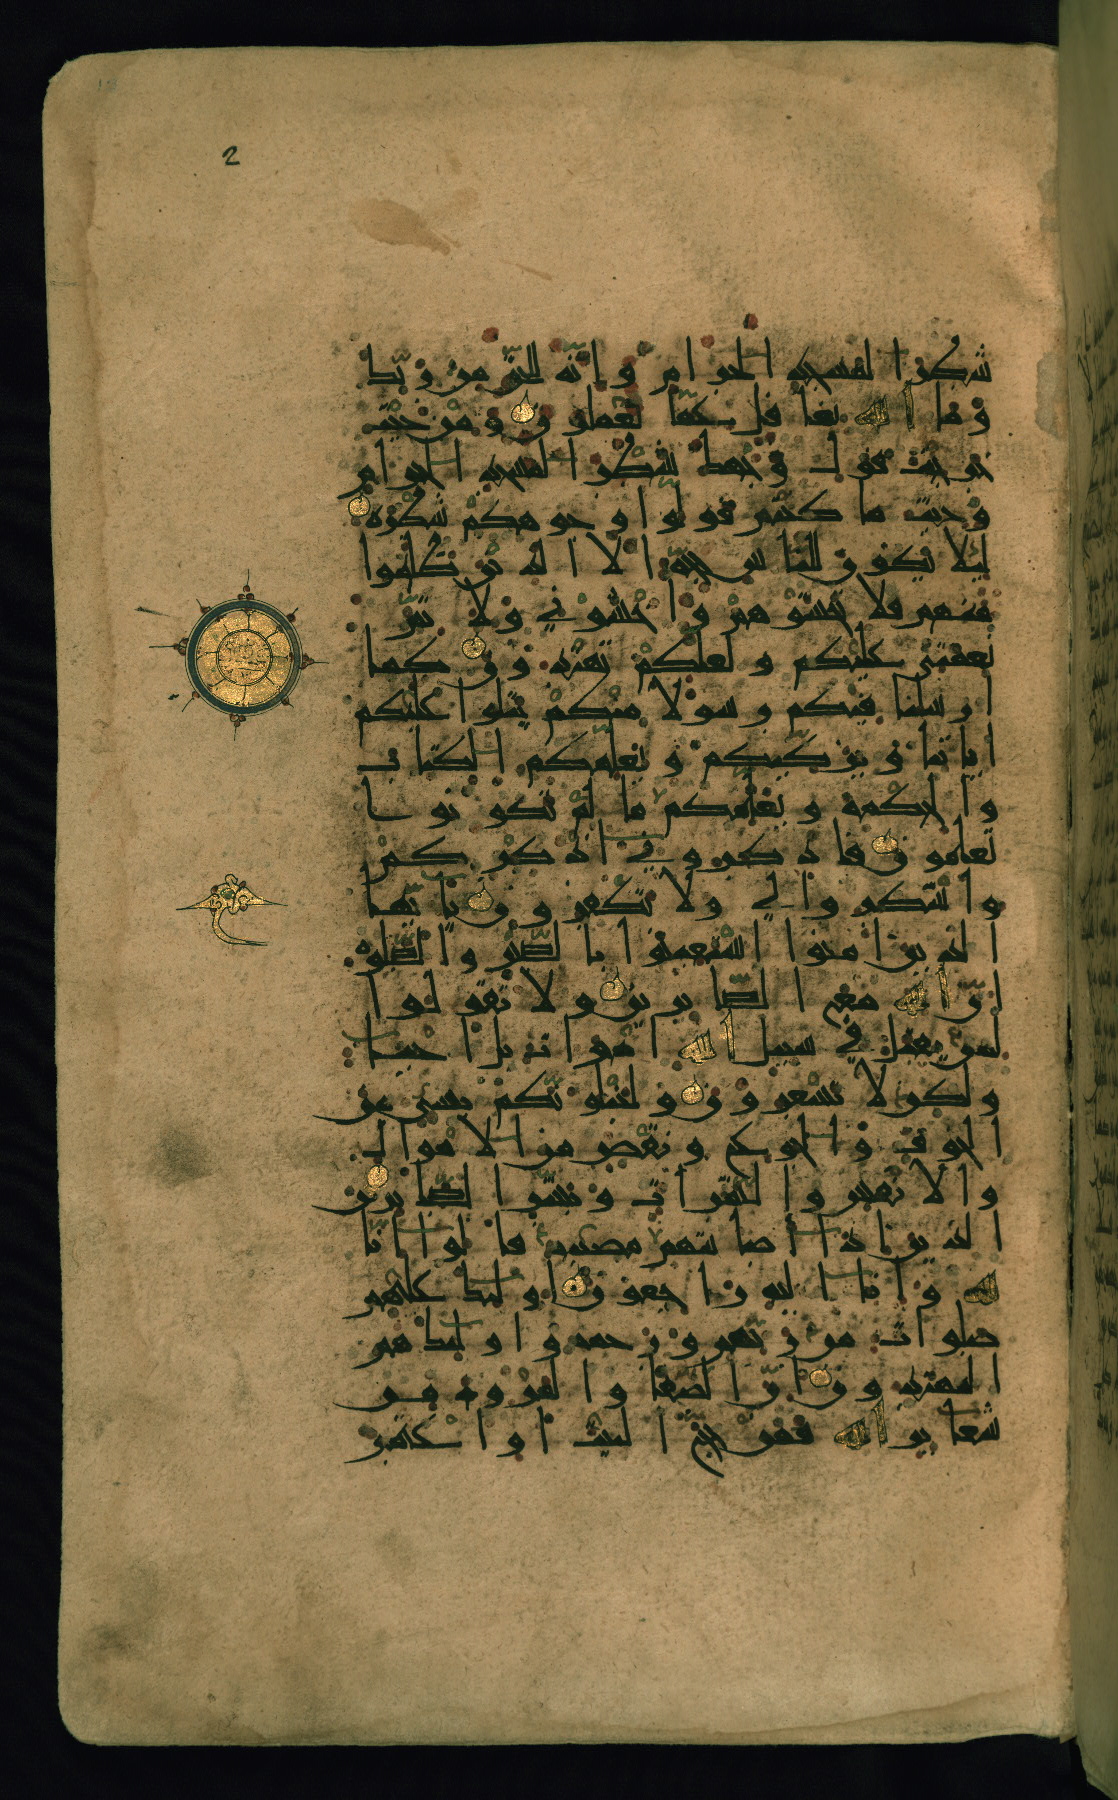 2
شطر المسجد الحرام وانه للحق من ربك
وما الله بغافل عما تعملون ومن حيث
خرجت فول وجهك شطر المسجد الحرام
وحيث ما كنتم فولوا وجوهكم شطره
ليلا يكون للناس حجة الا الذين ظلموا
منهم فلا تخشوهم واخشوني ولا تم
نعمتي عليكم ولعلكم تهتدون كما
ارسلنا فيكم رسولا منكم يتلوا عليكم
اياتنا ويزكيكم ويعلمكم الكتاب
والحكمة ويعلمكم ما لم تكونوا
تعلمون فاذكروني اذكركم
واشكروا لي ولا تكفرون يايها
الذين امنوا استعينوا بالصبر والصلوة
ان الله مع الصابرين ولا تقولوا
لمن يقتل في سبيل الله اموات بل احيا
ولكن لا تشعرون ولنبلونكم بشي من
الخوف والجوع ونقص من الاموال
والانفس والثمرات وبشر الصابرين
الذين اذا اصابتهم مصيبة قالوا انا
لله وانا اليه راجعون اوليك عليهم
صلوات من ربهم ورحمة واوليك هم
المهتدون ان الصفا والمروة من
شعاير الله فمن حج البيت او اعتمر